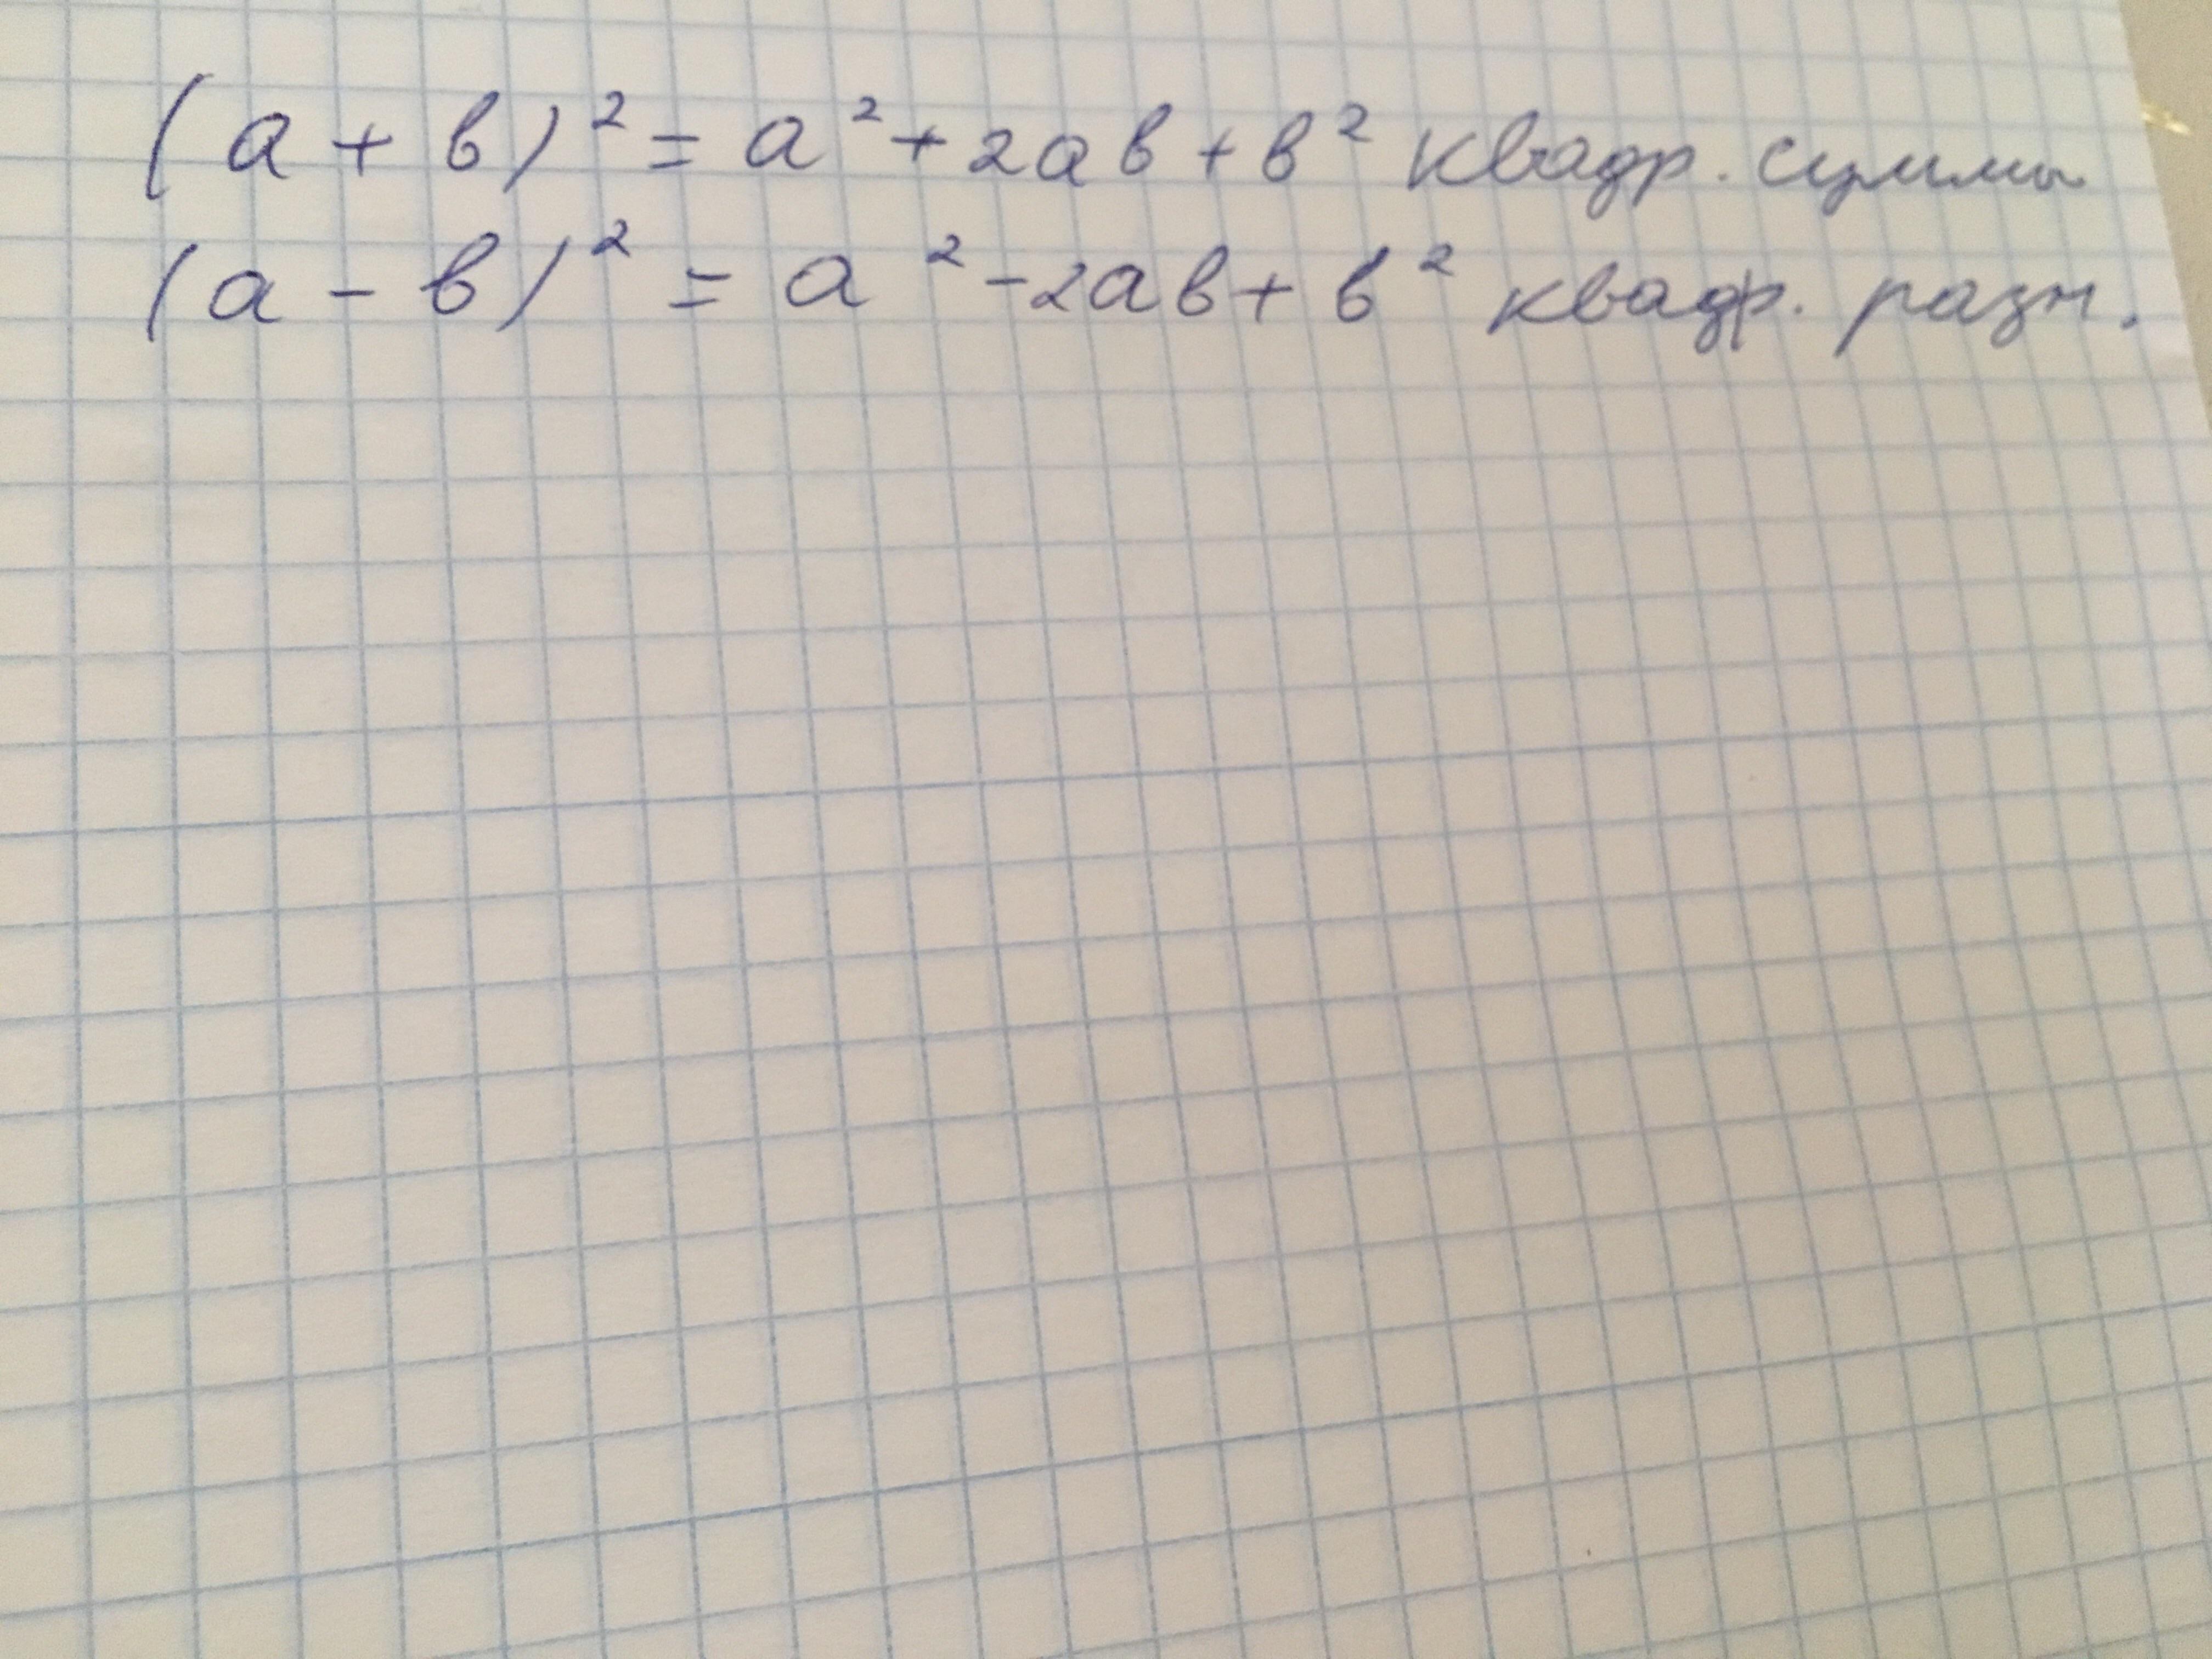 (a + в)² = a² + 2aв + в² квадр. суммы
(a - в)² = a² - 2aв + в² квадр. разн.